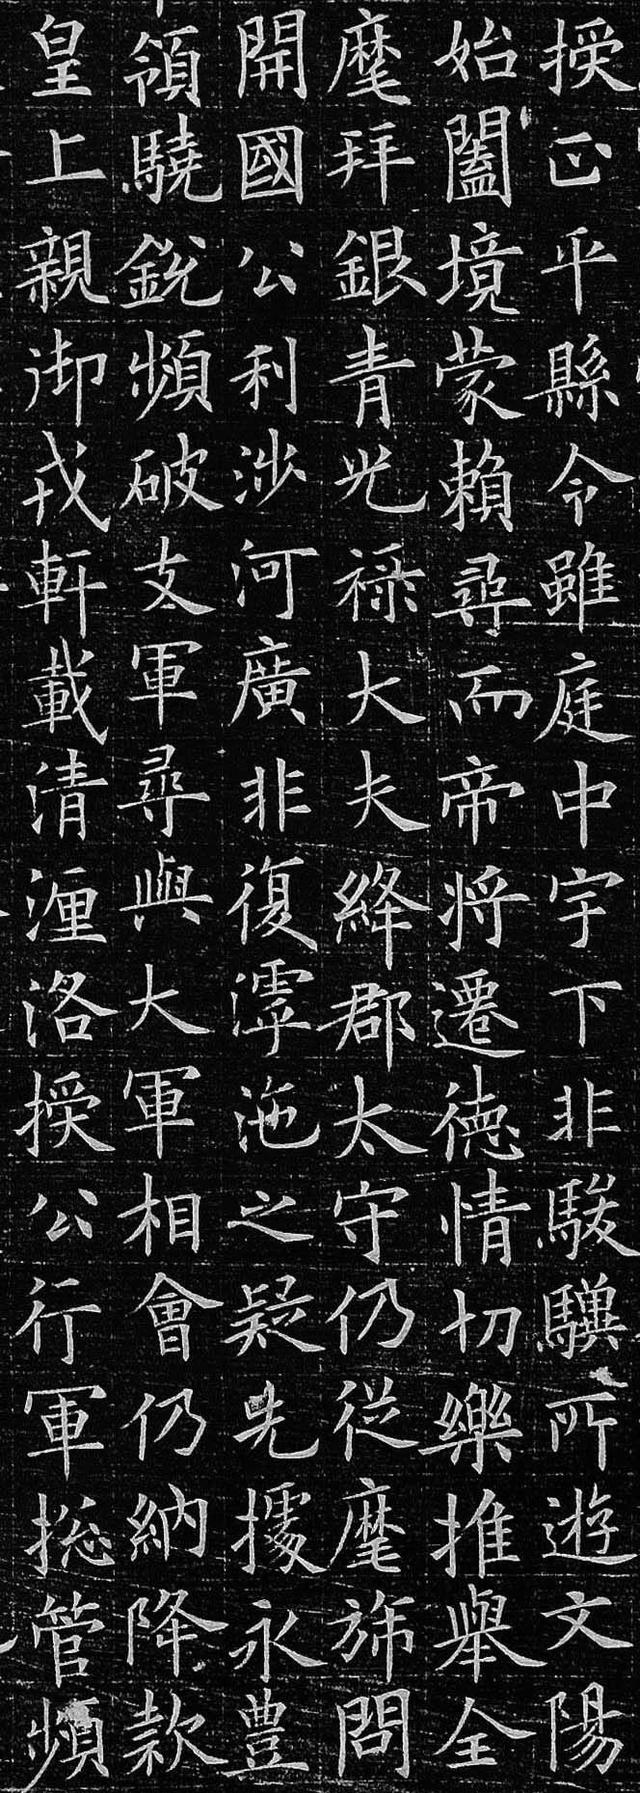 授正平縣令雖庭中宇下非駿驥所遊文陽
始闔境蒙賴尋而帝將遷德情切樂推舉全
麾拜銀青光祿大夫絳郡太守仍從麾旆問
開國公利涉河廣非復滹沲之疑先據永豊
領驍銳頻破支軍尋與大軍相會仍納降款
皇上親御戎軒載清瀍洛授公行軍摠管頻